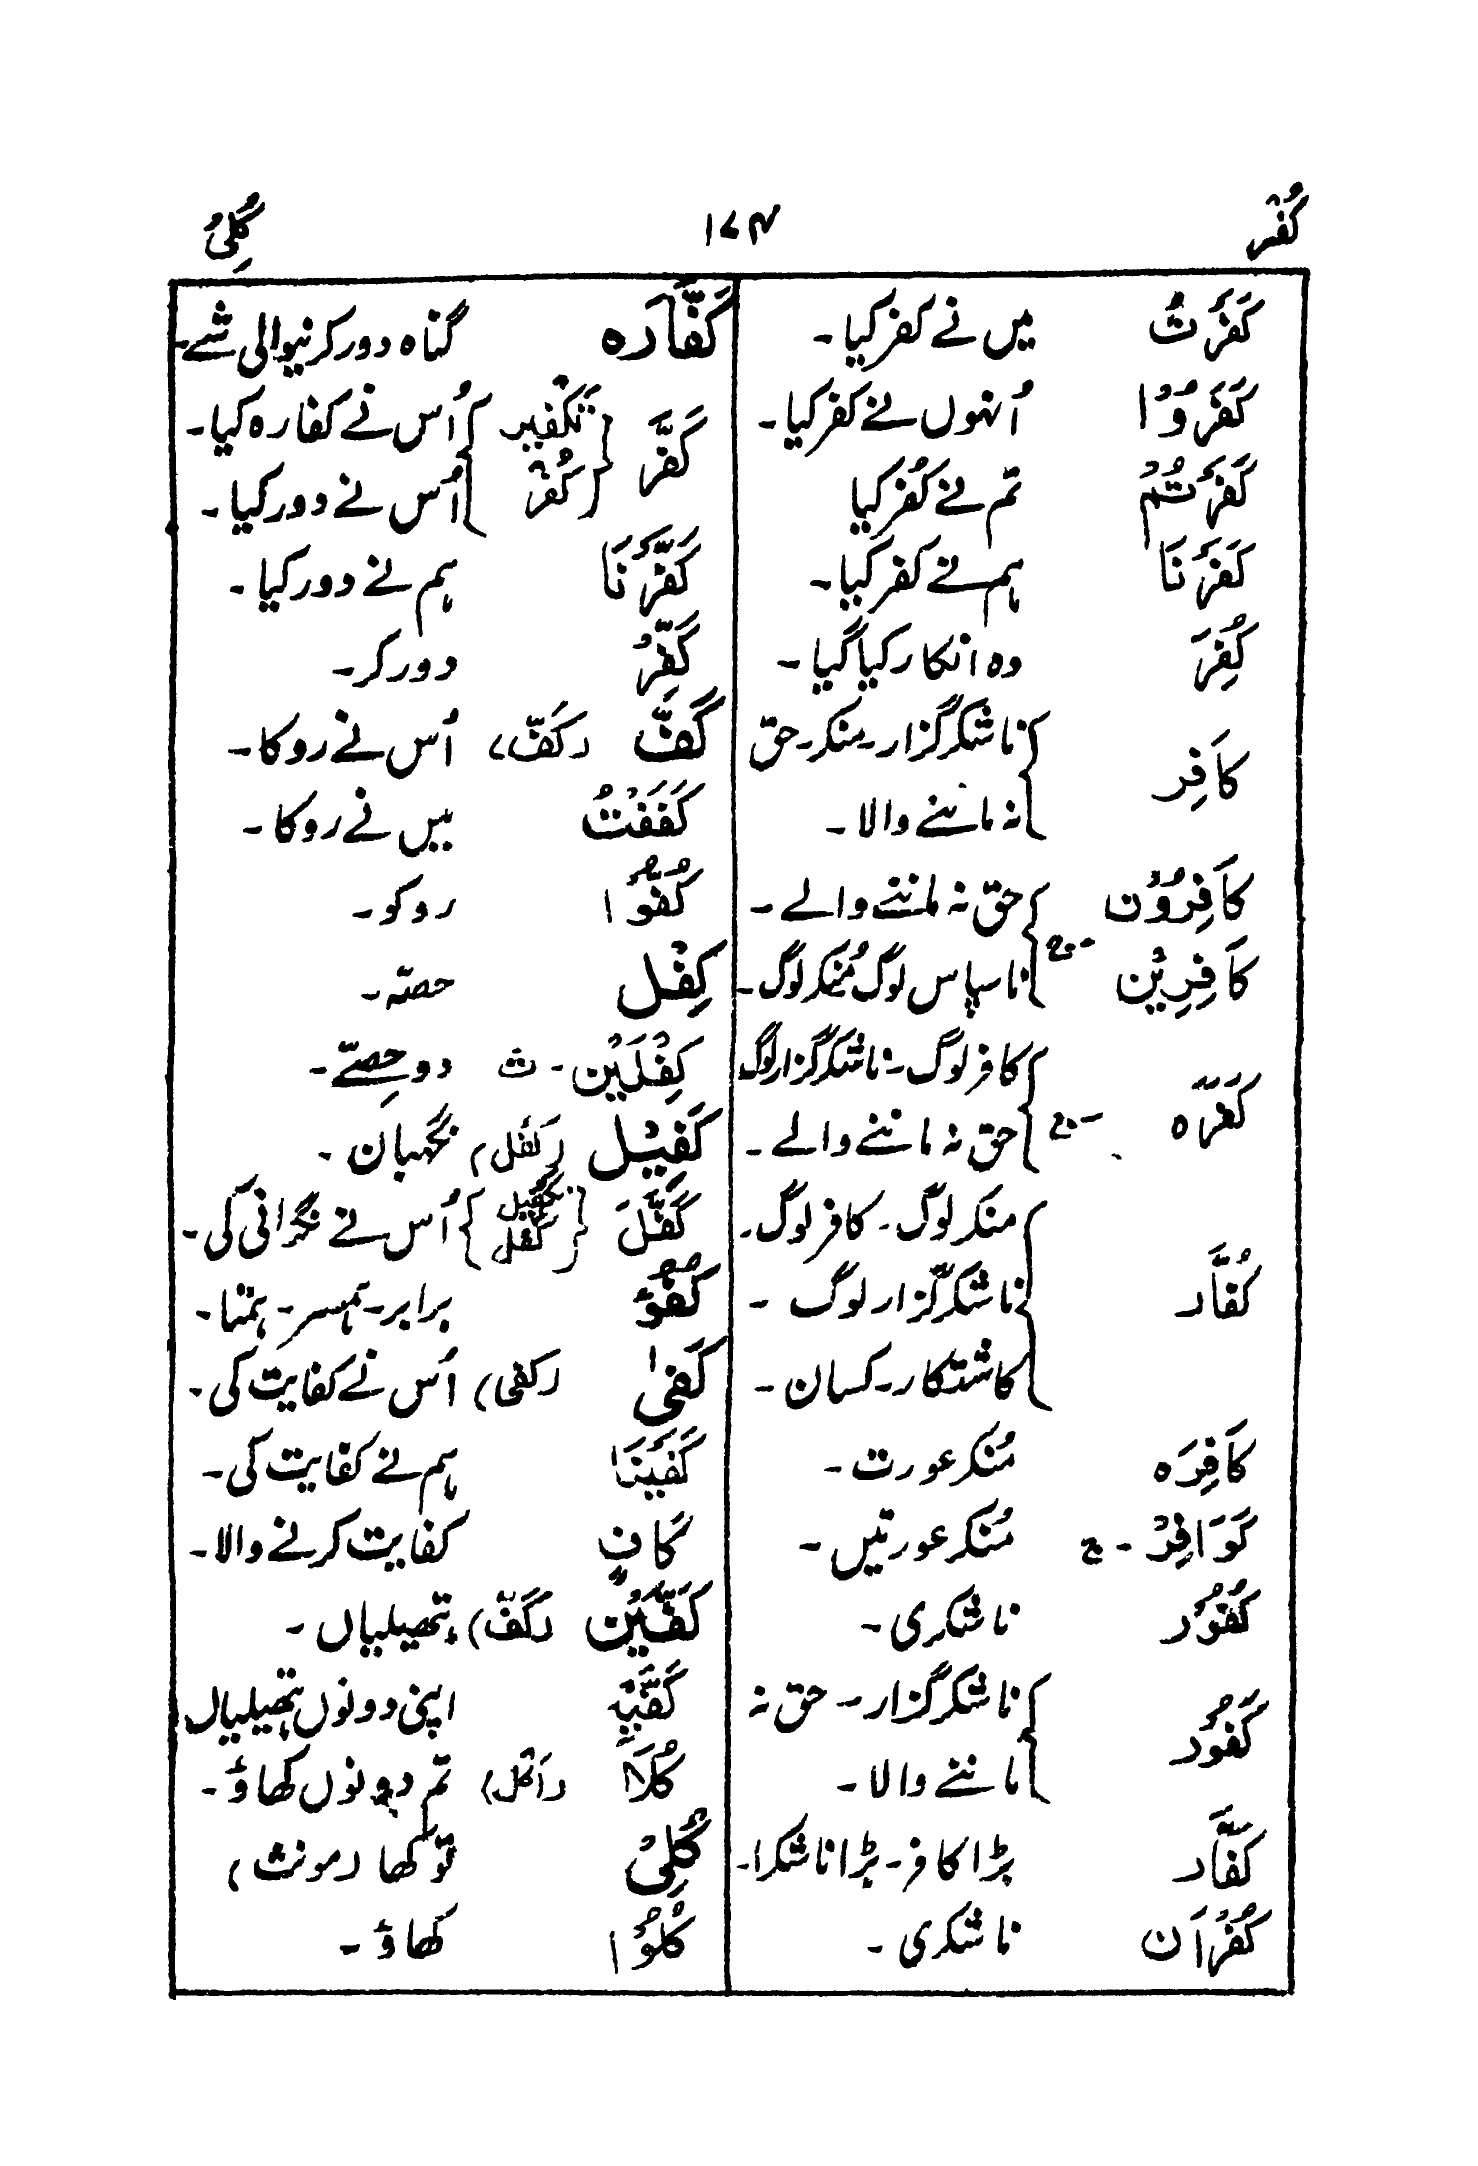 کُفْر ۱۷۴ کُلِیْ
کَفَرْتُ میں نے کفر کیا۔
کَفَرُوْا اُنہوں نے کفر کیا۔
کَفَرْتُمْ تم نے کُفر کیا
کَفَرْنَا ہم نے کفر کیا۔
کُفِرَ وہ انکار کیا گیا۔
کَافِر ناشکر گزار۔ منکر۔ حق
نہ ماننے والا۔
کَافِرُوْن حق نہ ماننے والے۔
کَافِرِیْن ۔ج ناسپاس لوگ مُنکر لوگ۔
کَفَرَہ ۔ج کافر لوگ۔ ناشکر گزار لوگ
حق نہ ماننے والے۔
کُفَّار منکر لوگ۔ کافر لوگ۔
ناشکر گزار لوگ ۔
کاشتکار۔ کسان ۔
کَافِرَہ مُنکر عورت ۔
کَوَافِرْ ۔ ج مُنکر عورتیں ۔
کُفُوْر ناشکری ۔
کَفُوْر ناشکر گزار ۔ حق نہ
ماننے والا ۔
کَفَّار بڑا کافر۔ بڑا ناشکرا۔
کُفْرَان ناشکری ۔
کَفَّارَہ گناہ دور کرنیوالی شے۔
کَفَّرَ {تَکْفِیر اُس نے کفارہ کیا۔
{کُفْر} اُس نے دور کیا ۔
کَفَّرْنَا ہم نے دور کیا ۔
کَفِّرْ دور کر ۔
کَفَّ (کَفّ) اُس نے روکا ۔
کَفَفْتُ میں نے روکا ۔
کُفُّوْا روکو ۔
کِفْل حصّہ ۔
کِفْلَیْن ۔ ث دو حِصّے ۔
کَفِیْل (کفل) نگہبان ۔
کَفَّلَ {تکفیل کفل} اُس نے نگرانی کی ۔
کُفُوْ برابر۔ ہمسر۔ ہمتا ۔
کَفیٰ (کفی) اُس نے کفایت کی ۔
کَفَیْنَا ہم نے کفایت کی ۔
کَافٍ کفایت کرنے والا ۔
کَفَّیْن (کَفّ) ہتھیلیاں ۔
کَفَّیْہِ اپنی دونوں ہتھیلیاں
کُلَا (اَکْل) تم دونوں کھاؤ ۔
کُلِیْ تو کھا (مونث)
کُلُوْا کھاؤ ۔